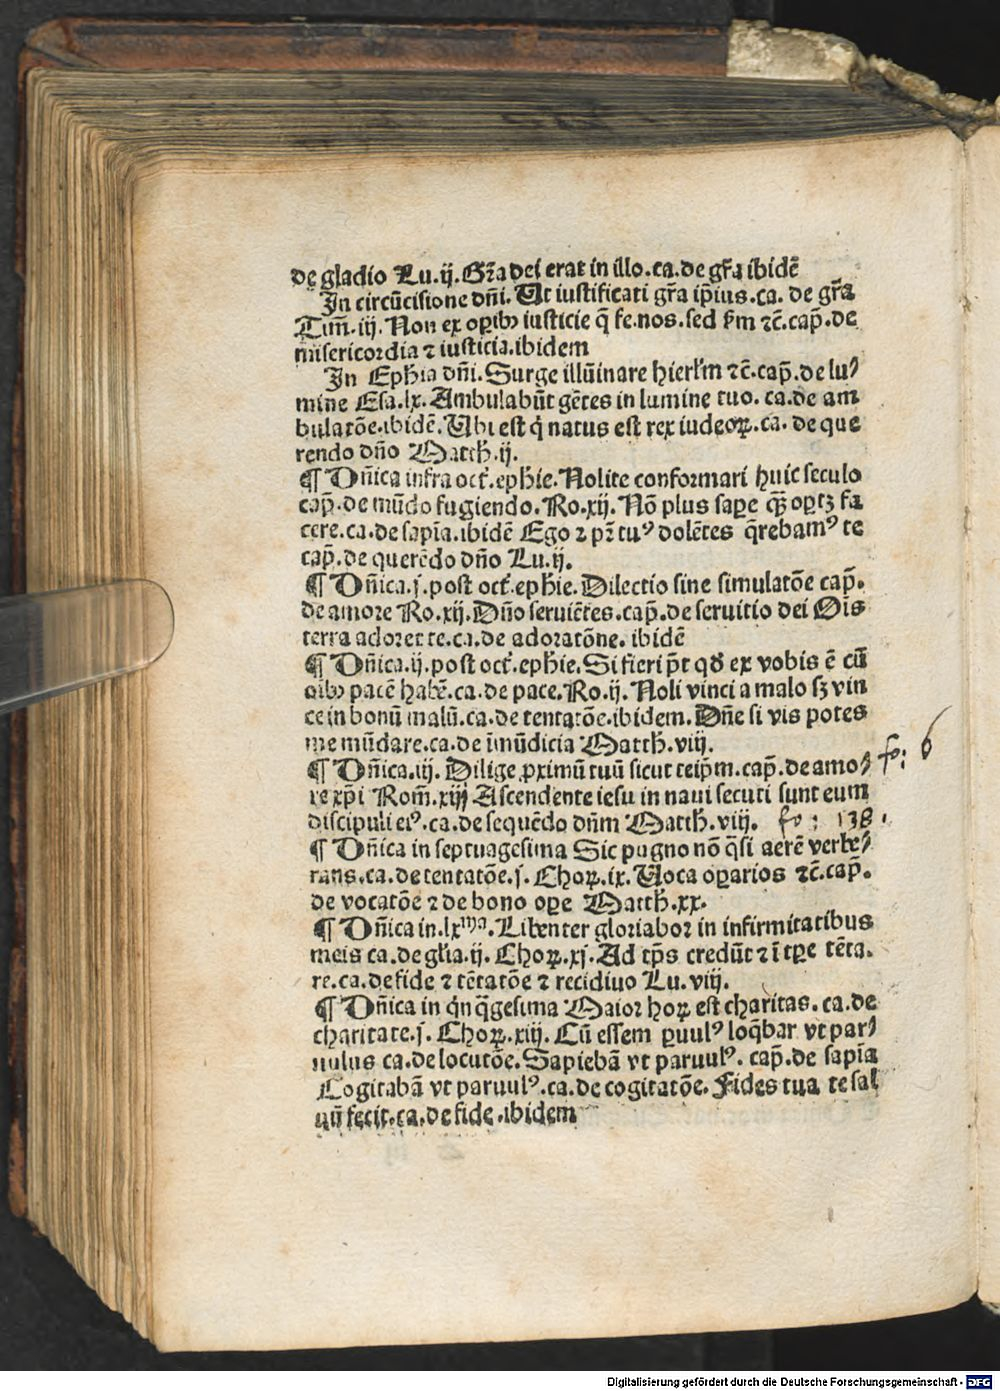 de gladio Lu.ij. Gr̄a dei erat in illo.ca.de gr̄a ibidē
In circūcisione dn̄i. Ut iustificati gr̄a ip̄ius.ca. de gr̄a
Tim̄.iij. Non ex oꝑibꝰ iusticie q̄ fe.nos.sed ẜm ⁊c̄.cap̄.de
misericordia ⁊ iusticia.ibidem
In Eph̄ia dn̄i. Surge illūinare hierl̄m ⁊c̄.cap̄.de lu⸗
mine Esa.lx. Ambulabūt gētes in lumine tuo. ca.de am
bulatōe.ibidē. Ubi est q̇ natus est rex iudeoꝝ.ca. de que
rendo dn̄o Matth̄.ij.
¶ Dn̄ica infra oct̄.eph̄ie. Nolite conformari huic seculo
cap̄.de mūdo fugiendo. Ro.xij. Nō plus saꝑe qꝫ̄ oꝑtꝫ sa
cere.ca.de sapīa.ibidē Ego ⁊ pr̄ tuꝰ dolētes q̄rebamꝰ te
cap̄.de querēdo dn̄o Lu.ij.
¶ Dn̄ica.j.post oct̄.eph̄ie. Dilectio sine simulatōe cap̄.
de amore Ro.xij. Dn̄o seruiētes.cap̄.de seruitio dei Oīs
terra adoret te.ca.de adoratōne. ibidē
¶ Dn̄ica.ij.post oct̄.eph̄ie. Si fieri pōt qđ ex vobis ē cū
oibꝰ pacē habē.ca.de pace. Ro.ij. Noli vinci a malo sꝫ vin
ce in bonū malū.ca.de tentatōe.ibidem. Dn̄e si vis potes
me mūdare.ca.de īmūdicia Matth̄.viij.
¶ Dn̄ica.iij. Dilige ꝓximū tuū sicut teip̄m.cap̄.de amo⸗ fo: 6
re xp̄i Rom̄.xiij Ascendente iesu in naui secuti sunt eum
discipuli eiꝰ.ca.de sequēdo dn̄m Matth̄.viij. fo: 138.
¶ Dn̄ica in septuagesima Sic pugno nō q̄si aerē verbe⸗
rans.ca.de tentatōe.j. Choꝝ.ix. Uoca oꝑarios ⁊c̄.cap̄.
de vocatōe ⁊ de bono oꝑe Matth̄.xx.
¶ Dn̄ica in.lxᵐᵃ. Libenter gloriabor in infirmitatibus
meis ca.de gl̄ia.ij. Choꝝ.xj. Ad tp̄s credūt ⁊ ī tꝑe tēta.
re.ca.de fide ⁊ tētatōe ⁊ recidiuo Lu.viij.
¶ Dn̄ica in q̇nq̄gesima Maior hoꝝ est charitas. ca.de
charitate.j. Choꝝ.xiij. Cū essem ꝑuulꝰ loq̄bar vt par⸗
uulus ca.de locutōe. Sapiebā vt paruulꝰ. cap̄.de sapīa
Cogitabā vt paruulꝰ.ca.de cogitatōe. Fides tua te sal
uū fecit.ca.de fide.ibidem
Digitalisierung gefördert durch die Deutsche Forschungsgemeinschaft - DFG